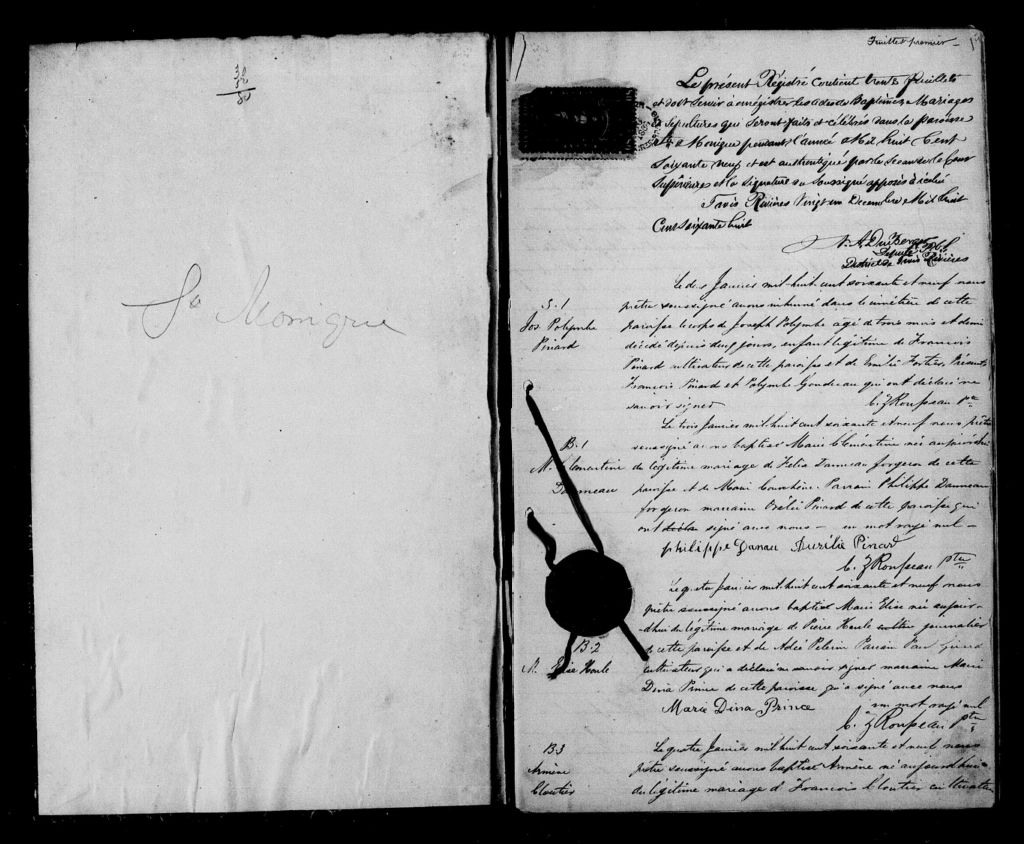 32
50
Ste Monique
Feuillet premier
Le présent Régistré contient trente feuillets
et doit servir à enrégistrer les actes de Baptêmes Mariages
& Sépultures qui seront faits et célébrés dans la paroisse
Ste Monique pendant l'année Mil Huit Cent
Soixante neuf et est authentiqué par le Sceau de la Cour
Supérieure et la signature du Soussigné apposés à icelui
Trois Rivières Vingt un Decembre Mil huit
Cent soixante huit
Député
District de Trois Rivières
Le deux Janvier mil huit cent soixante et neuf nous
S. 1
prêtre soussigné avons inhumé dans le cimetière de cette
Jos. Polycarpe
paroisse le corps de Joseph Polycarpe âgé de trois mois et demi
Pinard
décédé depuis deux jours, enfant légitime de François
Pinard cultivateur de cette paroisse et de Emélie Fortier. Présents
François Pinard et Gaudreau qui ont déclaré ne
savoir signer
C. Z Rousseau Ptre
Le trois Janvier mil huit cent soixante et neuf nous prêtre
B. 1
soussigné avons baptisé Marie Clémentine née aujourd'hui
M. Clementine
du légitime mariage de Félix Danneau forgeron de cette
Danneau
paroisse et de Marie Parrain Philippe Danneau
forgeron marraine Pinard de cette paroisse qui
ont déclaré signé avec nous – un mot rayé nul –
philippe Danau Aurélie Pinard
C. Z Rousseau Ptre
Le quatre Janvier mil huit cent soixante et neuf nous
prêtre soussigné avons baptisé Marie Elise née aujour-
-d'hui du légitime mariage de Pierre Houle journalier
B. 2
de cette paroisse et de Adée Pelerin Parrain
M. Elise Houle
cultivateur qui a déclaré ne savoir signer marraine Marie
Dina Prince de cette paroisse qui a signé avec nous
Marie Dina Prince
un mot rayé nul
C. Z Rousseau Ptre
B. 3
Le quatre Janvier mil huit cent soixante et neuf nous
Armène
prêtre soussigné avons baptisé Armène né aujourd'hui
Cloutier
du légitime mariage de François Cloutier cultivateur